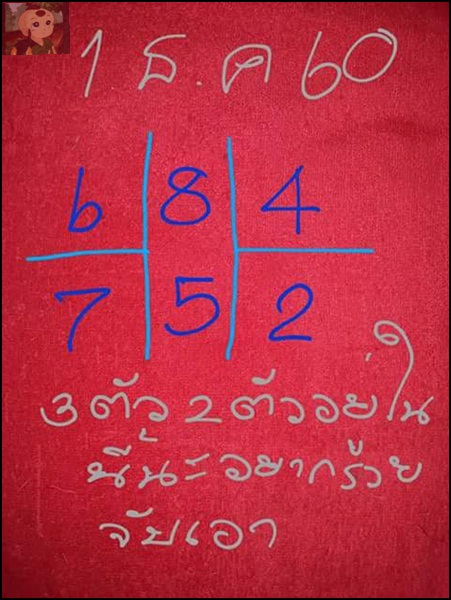 1 ธ.ค 60
6 8 4
7 5 2
3 ตัว 2 ตัวอยู่ใน
นี้นะอยากรวย
จับเอา